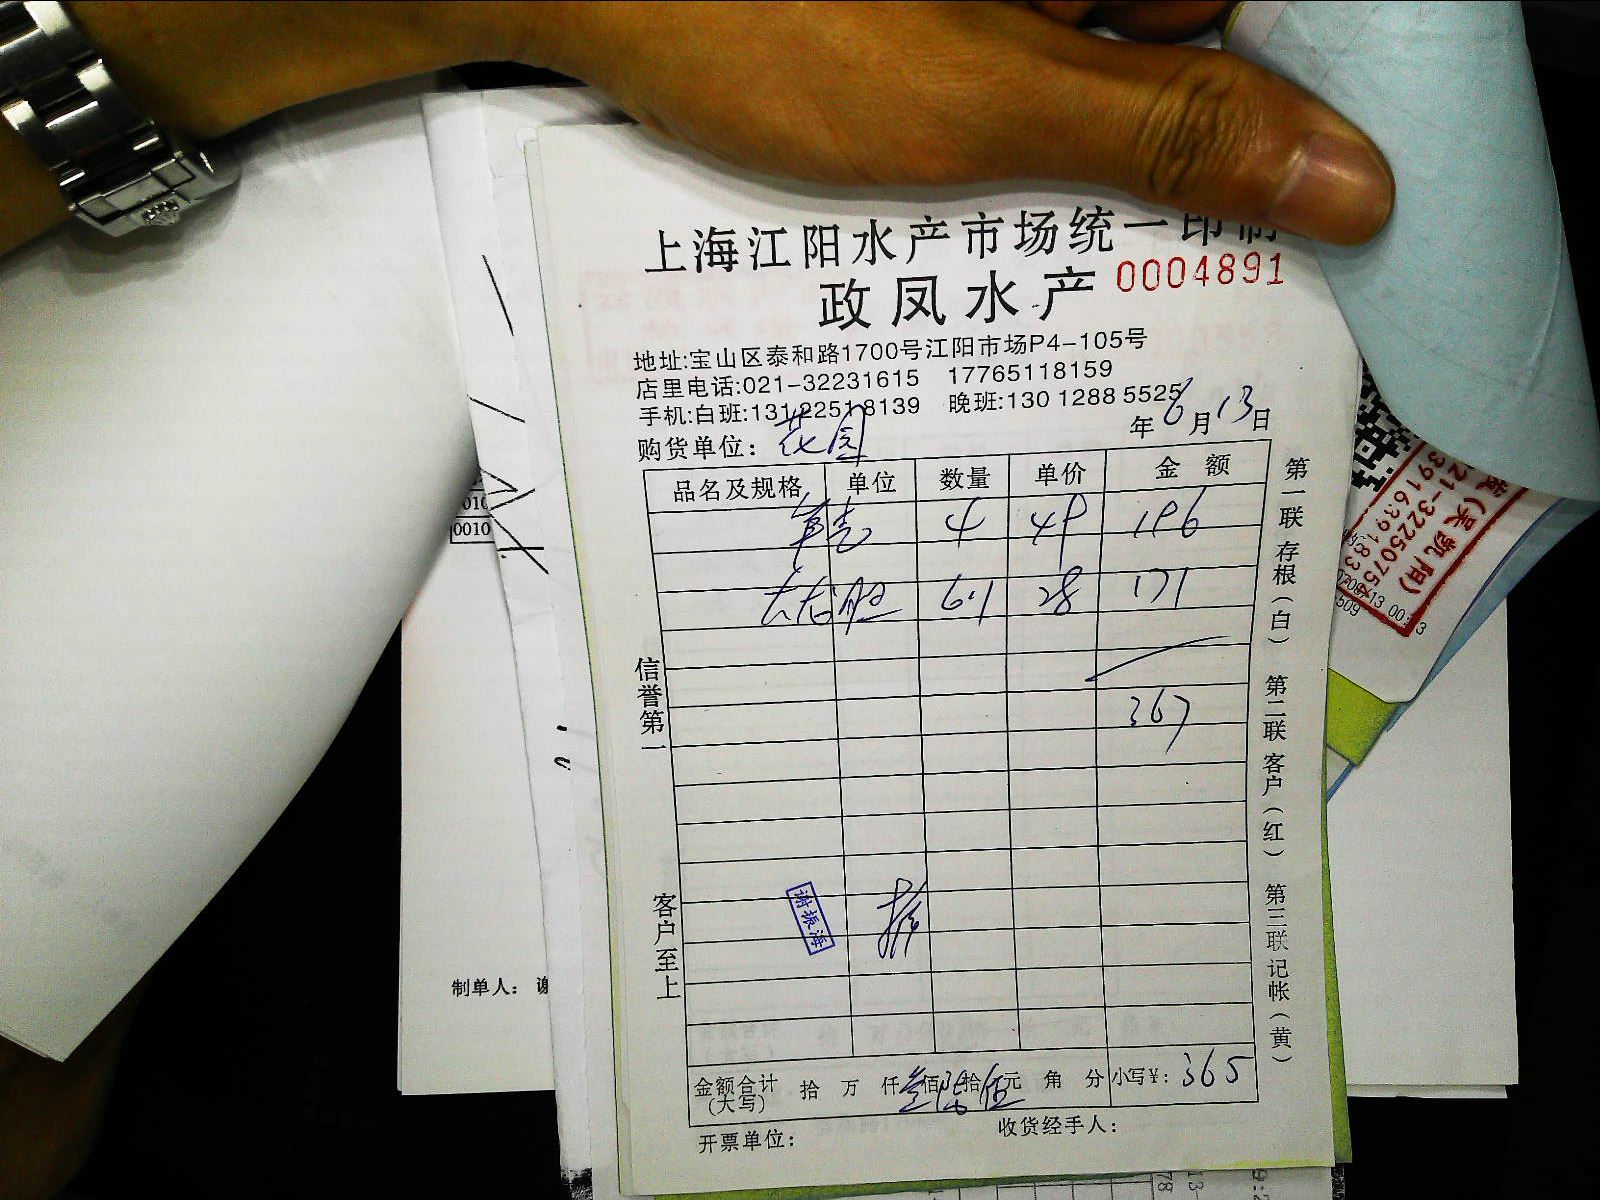 上海江阳水产市场统一印制
政凤水产 0004891
地址:宝山区泰和路1700号江阳市场P4-105号
店里电话:021-32231615 17765118159
手机:白班:131 2251 8139 晚班:130 1288 5525
购货单位: 花园 年 6 月 13 日
品名及规格 单位 数量 单价 金额
4 49 196
龙胆 6.1 28 171
367
信誉第一
客户至上
谢振海
金额合计(大写) 拾 万 仟 叁佰 陆拾 伍元 角 分 小写¥: 365
开票单位: 收货经手人:
第一联 存根(白) 第二联 客户(红) 第三联 记帐(黄)
制单人: 谢
0010
0010
(吴凯阳)